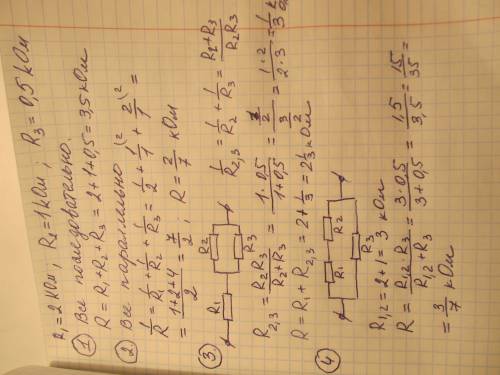 R₁=2 кОм; R₂=1 кОм; R₃=0,5 кОм
① Все последовательно.
R=R₁+R₂+R₃=2+1+0,5=3,5 кОм
② Все параллельно
1/R = 1/R₁ + 1/R₂ + 1/R₃ = 1/2 + 1/1 + 2/1 =
= (1+2+4)/2 = 7/2; R = 2/7 кОм
③ R₁ R₂ R₃ 1/R₂,₃ = 1/R₂ + 1/R₃ = (R₂+R₃)/(R₂R₃)
R₂,₃ = R₂R₃/(R₂+R₃) = 1·0,5/(1+0,5) = (1/2)/(3/2) = 1·2/2·3 = 1/3 кОм
R=R₁+R₂,₃ = 2+1/3 = 2 1/3 кОм
④ R₁ R₂ R₃
R₁,₂=2+1=3 кОм
R = R₁,₂ R₃/(R₁,₂+R₃) = 3·0,5/(3+0,5) = 1,5/3,5 = 15/35 =
= 3/7 кОм